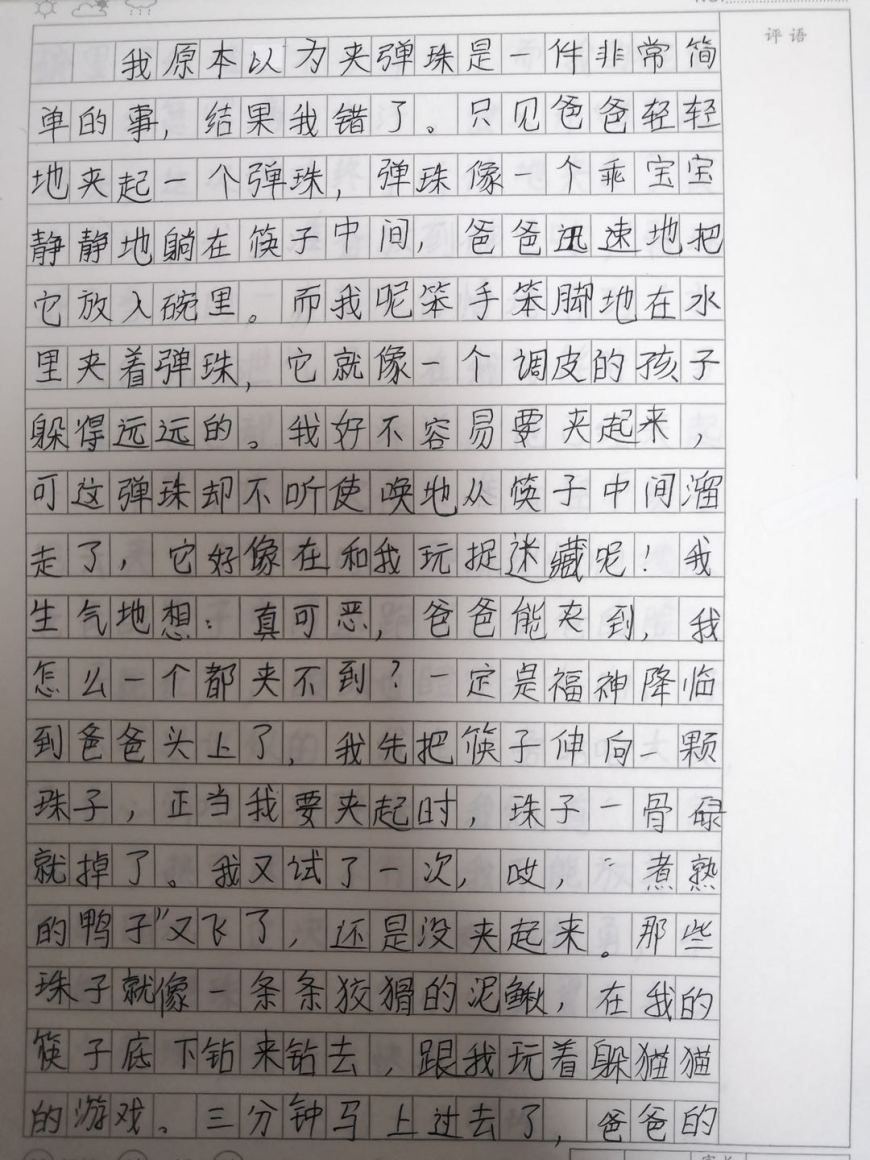 评语
我原本以为夹弹珠是一件非常简
单的事，结果我错了。只见爸爸轻轻
地夹起一个弹珠，弹珠像一个乖宝宝
静静地躺在筷子中间，爸爸迅速地把
它放入碗里。而我呢笨手笨脚地在水
里夹着弹珠，它就像一个调皮的孩子
躲得远远的。我好不容易要夹起来，
可这弹珠却不听使唤地从筷子中间溜
走了，它好像在和我玩捉迷藏呢！我
生气地想：真可恶，爸爸能夹到，我
怎么一个都夹不到？一定是福神降临
到爸爸头上了，我先把筷子伸向一颗
珠子，正当我要夹起时，珠子一骨碌
就掉了。我又试了一次，哎，“煮熟
的鸭子”又飞了，还是没夹起来。那些
珠子就像一条条狡猾的泥鳅，在我的
筷子底下钻来钻去，跟我玩着躲猫猫
的游戏。三分钟马上过去了，爸爸的